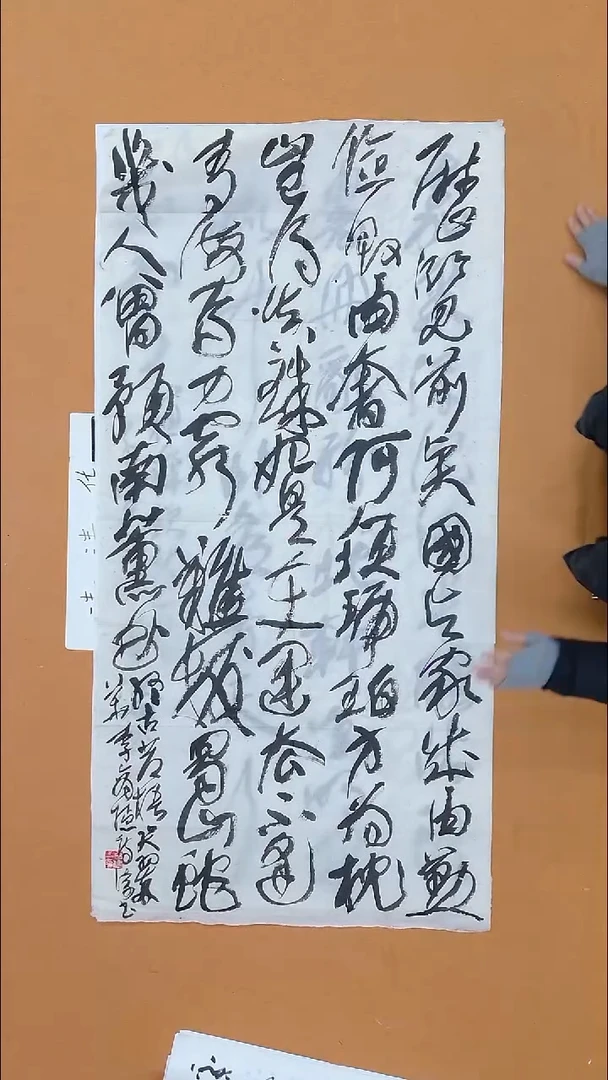 歷覽前賢國與家成由勤
儉破由奢何須琥珀方為枕
豈得真珠始是車運去不逢
青海馬力窮難拔蜀山蛇
幾人曾預南薰曲
終古蒼梧哭翠
華李商隱詩